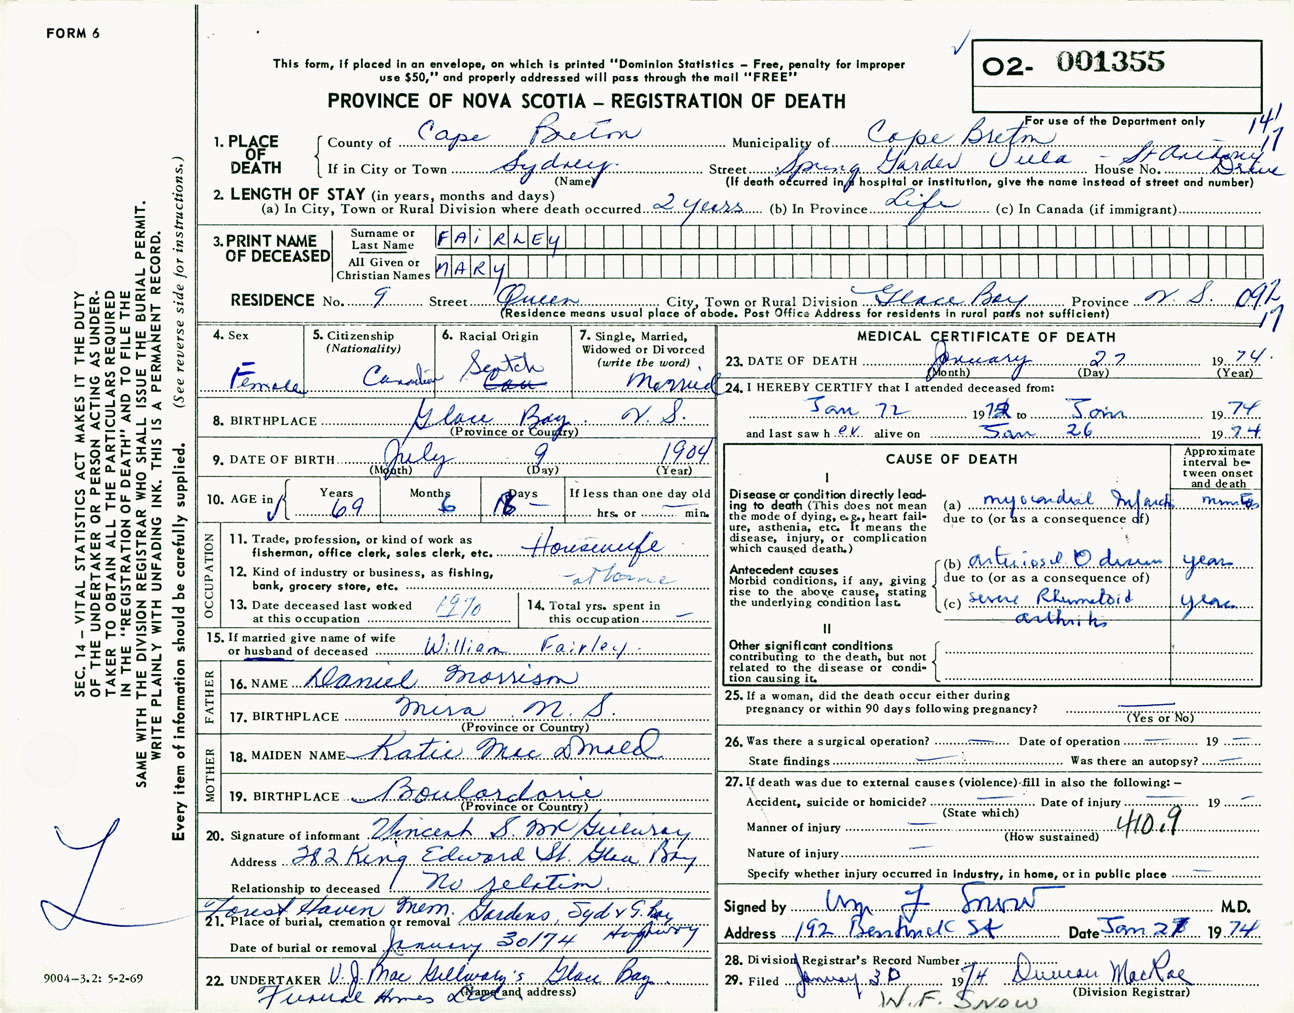 FORM 6
This form, if placed in an envelope, on which is printed "Dominion Statistics – Free, penalty for improper
use $50," and properly addressed will pass through the mail "FREE"
PROVINCE OF NOVA SCOTIA – REGISTRATION OF DEATH
O2- 001355
For use of the Department only
141
17
1. PLACE OF DEATH
County of Cape Breton Municipality of Cape Breton
If in City or Town Sydney Street Spring Garden Villa - St Anthony Drive House No.
(Name) (If death occurred in a hospital or institution, give the name instead of street and number)
2. LENGTH OF STAY (in years, months and days)
(a) In City, Town or Rural Division where death occurred 2 years (b) In Province Life (c) In Canada (if immigrant)
3. PRINT NAME OF DECEASED
Surname or Last Name FAIRLEY
All Given or Christian Names MARY
RESIDENCE No. 9 Street Queen City, Town or Rural Division Glace Bay Province N. S. 092
17
(Residence means usual place of abode. Post Office Address for residents in rural parts not sufficient)
4. Sex Female
5. Citizenship (Nationality) Canadian
6. Racial Origin Scotch
7. Single, Married, Widowed or Divorced (write the word) Married
8. BIRTHPLACE Glace Bay N. S.
(Province or Country)
9. DATE OF BIRTH July 9 1904
(Month) (Day) (Year)
10. AGE in Years 69 Months 6 Days 18 If less than one day old hrs. or min.
OCCUPATION
11. Trade, profession, or kind of work as fisherman, office clerk, sales clerk, etc. Housewife
12. Kind of industry or business, as fishing, bank, grocery store, etc. at home
13. Date deceased last worked at this occupation 1970
14. Total yrs. spent in this occupation –
15. If married give name of wife or husband of deceased William Fairley
FATHER
16. NAME Daniel Morrison
17. BIRTHPLACE Mira N. S.
(Province or Country)
MOTHER
18. MAIDEN NAME Katie MacDonald
19. BIRTHPLACE Boulardarie
(Province or Country)
20. Signature of informant Vincent S. McGillivray
Address 282 King Edward St. Glace Bay
Relationship to deceased No relation
Forest Haven Mem. Gardens, Syd & G. Bay Highway
21. Place of burial, cremation or removal
Date of burial or removal January 30/74
22. UNDERTAKER V. J. Mac Gillivary's Glace Bay
Funeral Homes Ltd
(Name and address)
MEDICAL CERTIFICATE OF DEATH
23. DATE OF DEATH January 27 1974
(Month) (Day) (Year)
24. I HEREBY CERTIFY that I attended deceased from:
Jan 72 1972 to Jan 1974
and last saw her alive on Jan 26 1974
CAUSE OF DEATH
Approximate interval between onset and death
I
Disease or condition directly leading to death (This does not mean the mode of dying, e.g., heart failure, asthenia, etc. It means the disease, injury, or complication which caused death.)
(a) myocardial Infarct minutes
due to (or as a consequence of)
Antecedent causes
Morbid conditions, if any, giving rise to the above cause, stating the underlying condition last.
(b) years
due to (or as a consequence of)
(c) severe Rhumatoid arthritis years
II
Other significant conditions
contributing to the death, but not related to the disease or condition causing it.
25. If a woman, did the death occur either during
pregnancy or within 90 days following pregnancy? —
(Yes or No)
26. Was there a surgical operation? — Date of operation — 19 —
State findings — Was there an autopsy? —
27. If death was due to external causes (violence) fill in also the following: –
Accident, suicide or homicide? — Date of injury — 19 –
(State which)
Manner of injury — 410.9
(How sustained)
Nature of injury —
Specify whether injury occurred in Industry, in home, or in public place —
Signed by Wm F Snow M.D.
Address 192 Bentinck St Date Jan 27 1974
28. Division Registrar's Record Number
29. Filed January 30 1974 Duncan MacRae
(Division Registrar)
W. F. SNOW
SEC. 14 – VITAL STATISTICS ACT MAKES IT THE DUTY
OF THE UNDERTAKER OR PERSON ACTING AS UNDER-
TAKER TO OBTAIN ALL THE PARTICULARS REQUIRED
IN THE "REGISTRATION OF DEATH" AND TO FILE THE
SAME WITH THE DIVISION REGISTRAR WHO SHALL ISSUE THE BURIAL PERMIT.
WRITE PLAINLY WITH UNFADING INK. THIS IS A PERMANENT RECORD.
Every item of information should be carefully supplied. (See reverse side for instructions.)
9004-3.2: 5-2-69